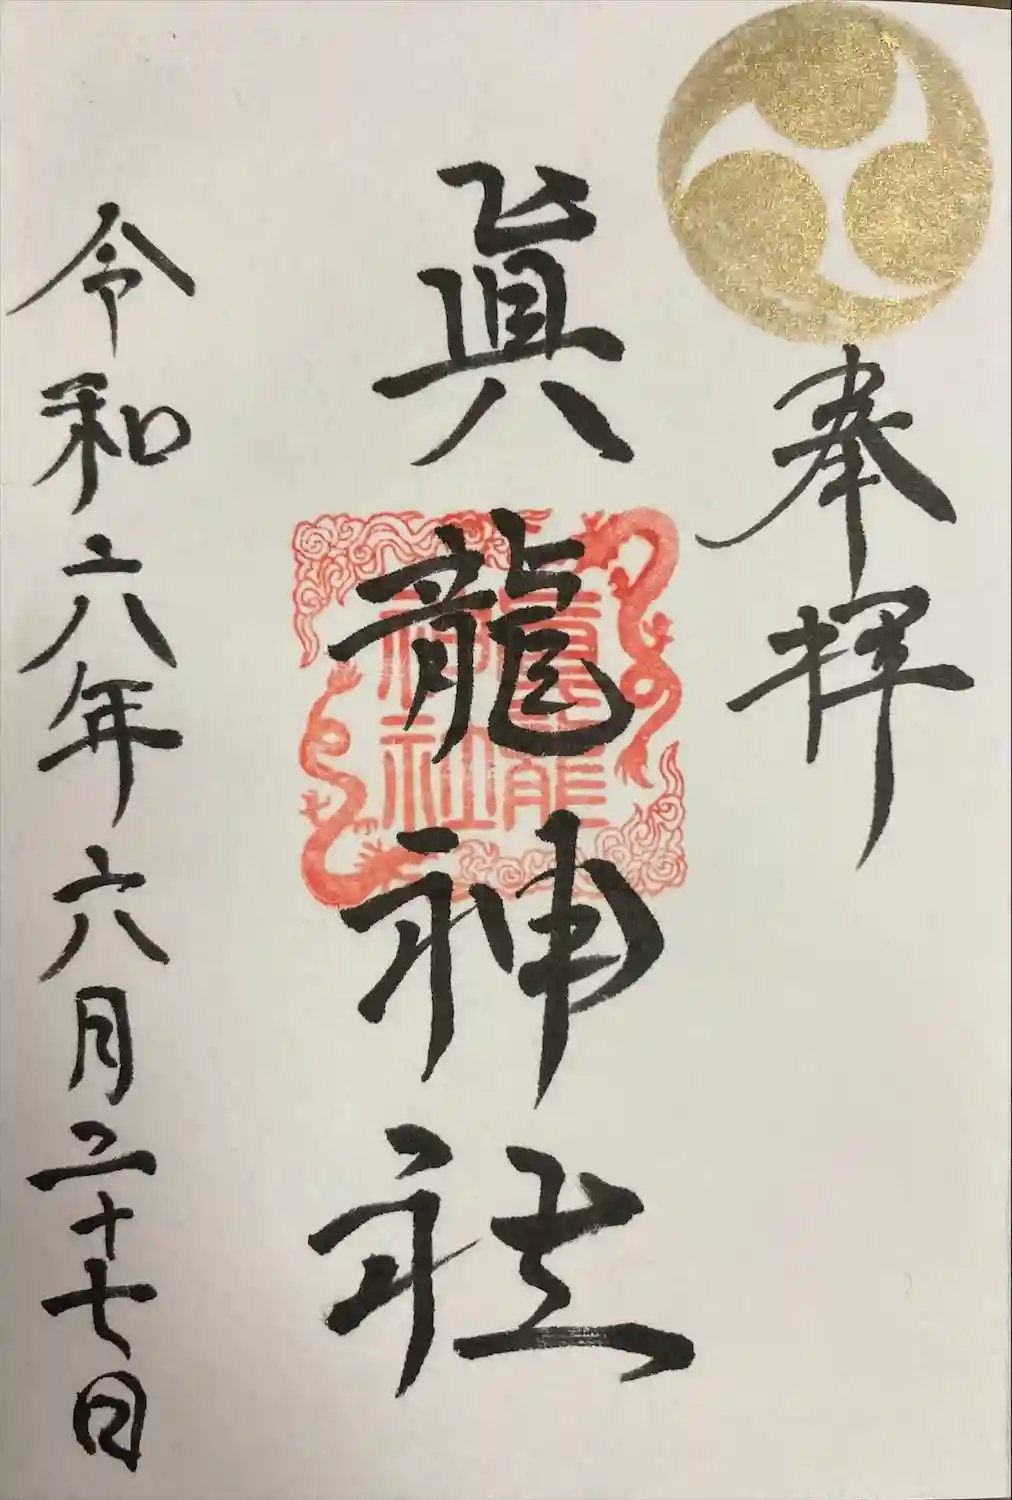 奉拝
眞龍神社
眞龍
神社
令和六年六月二十七日